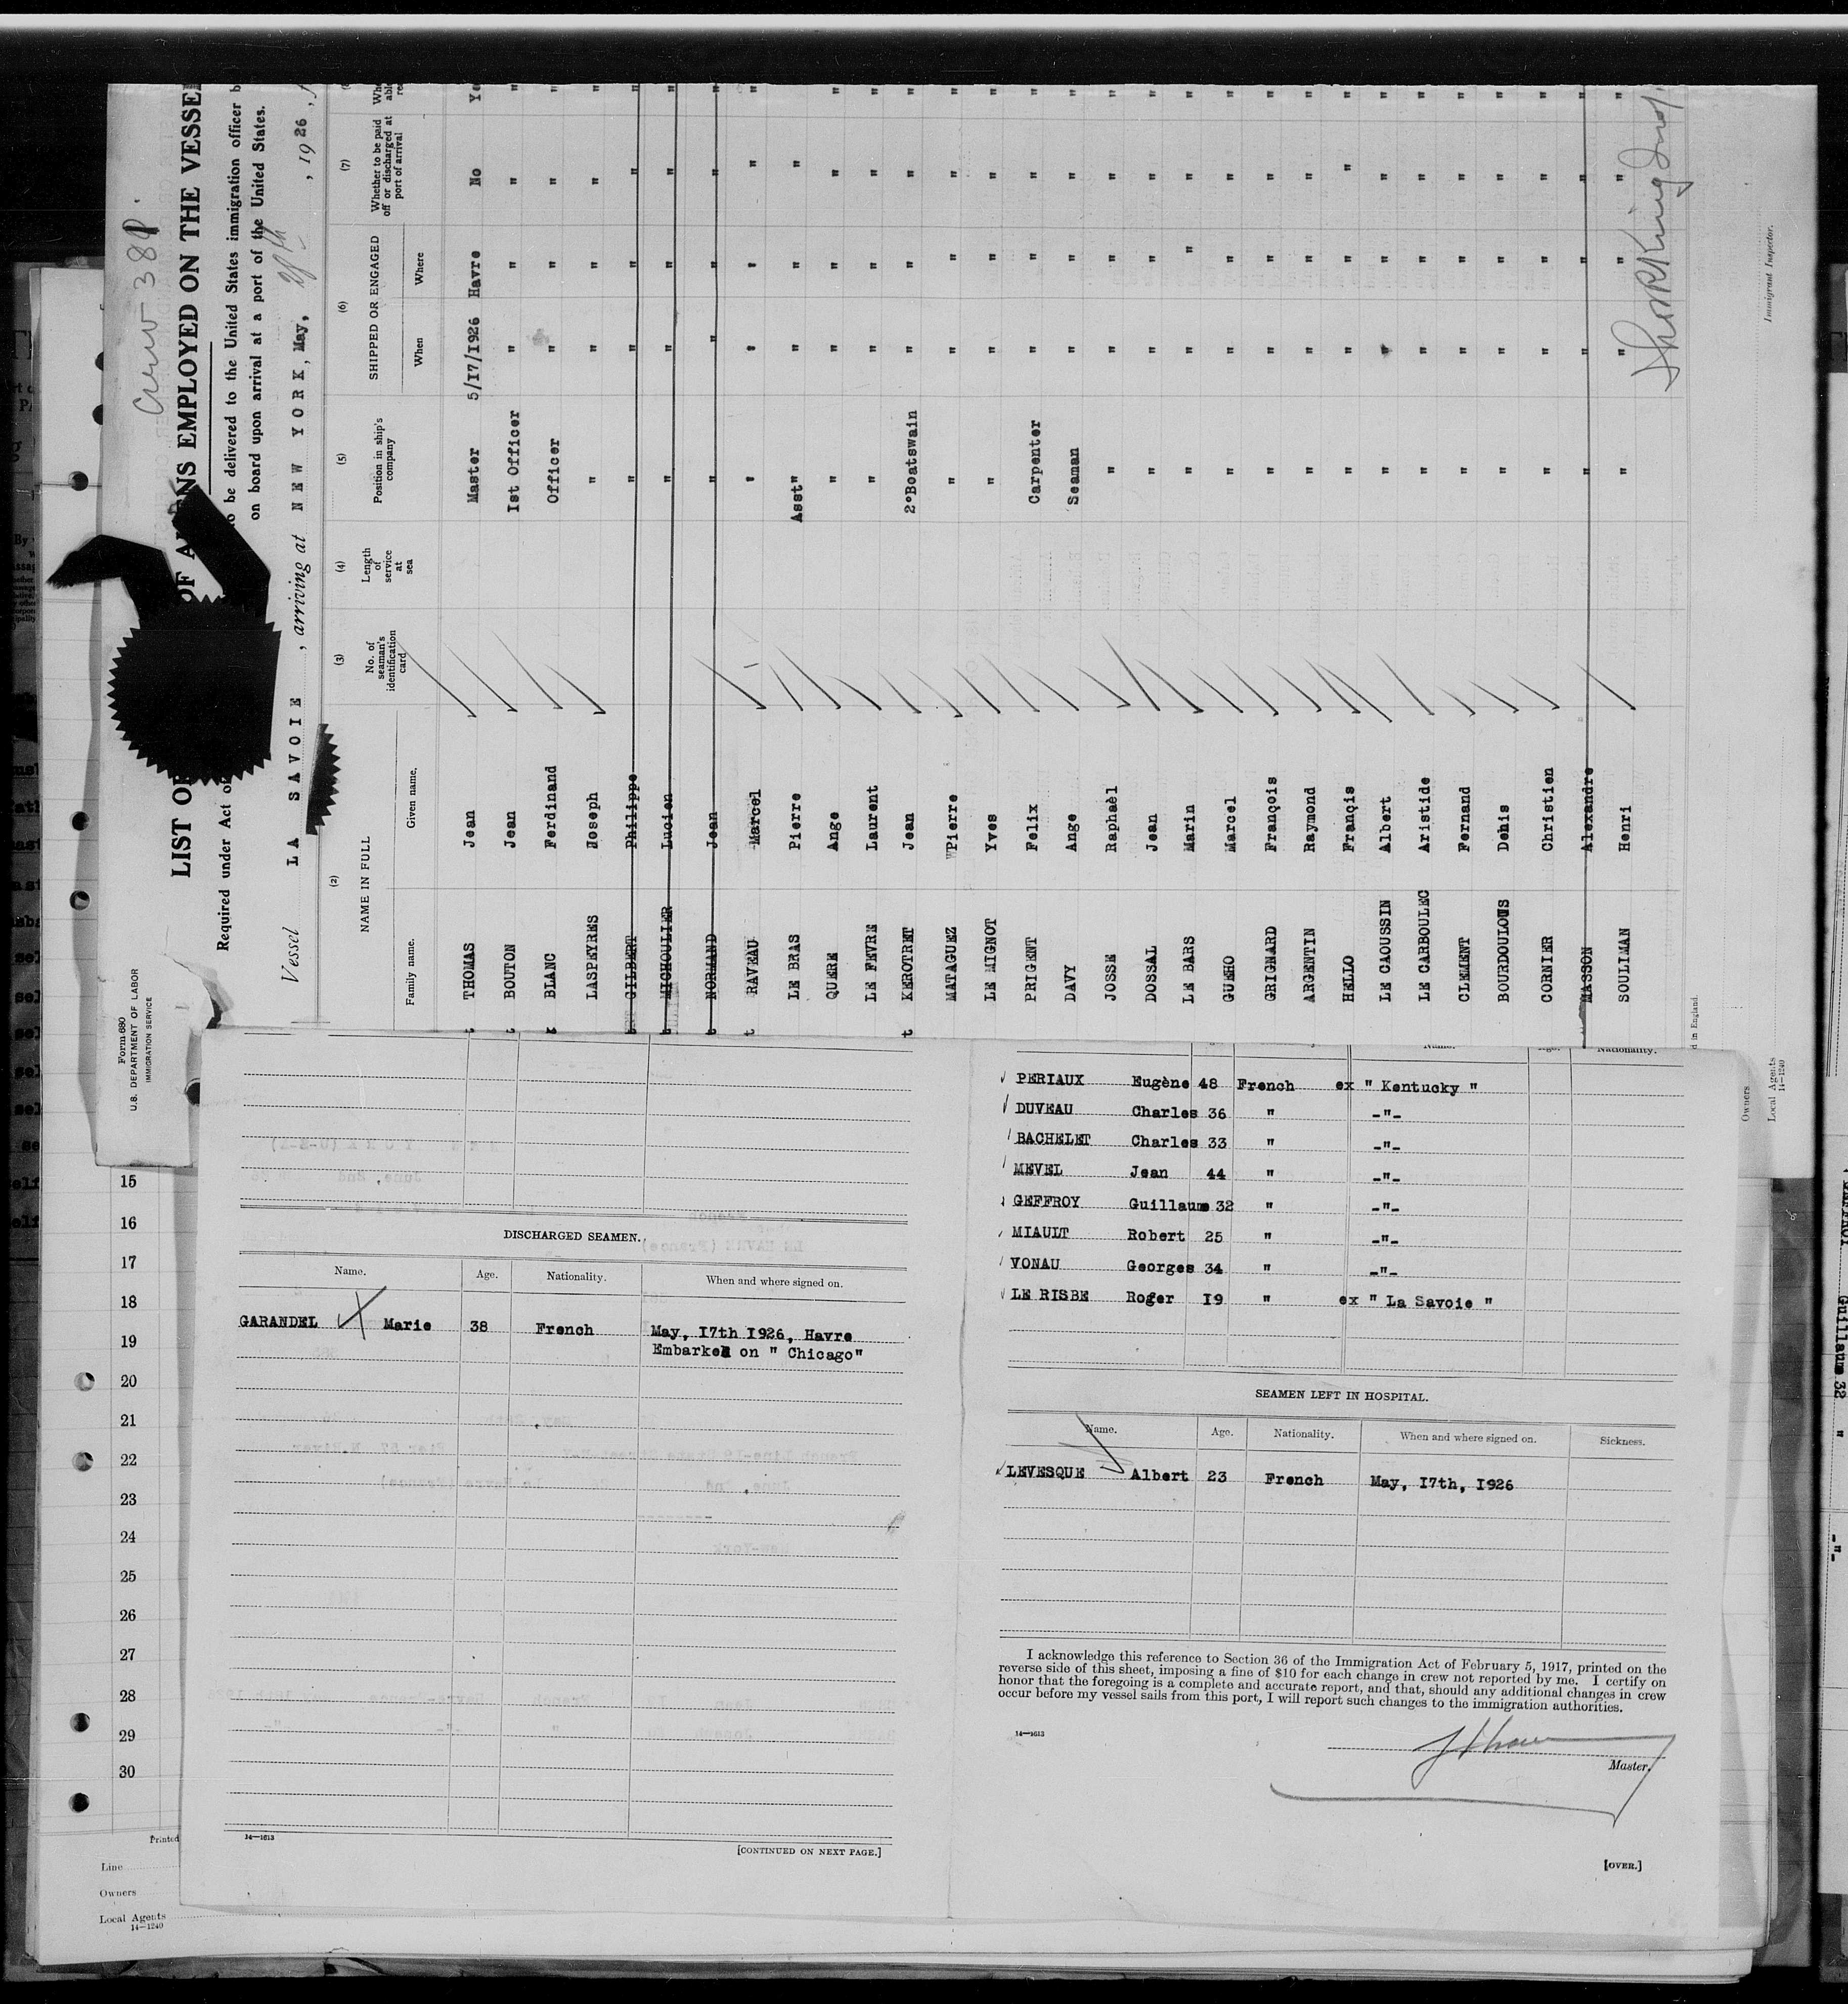 Form 680
U.S. DEPARTMENT OF LABOR
IMMIGRATION SERVICE
Crew 381.
LIST OF ALIENS EMPLOYED ON THE VESSEL
Required under Act of
to be delivered to the United States immigration officer b
on board upon arrival at a port of the United States.
Vessel LA SAVOIE, arriving at NEW YORK, May, , 1926, f
(2) (3) (4) (5) (6) (7)
NAME IN FULL
Family name. Given name.
No. of seaman's identification card
Length of service at sea
Position in ship's company
SHIPPED OR ENGAGED
When Where
Whether to be paid off or discharged at port of arrival
THOMAS Jean Master 5/17/1926 Havre No Ye
BOUTON Jean 1st Officer " " " "
BLANC Ferdinand Officer " " " "
LASPEYRES Joseph " " " " "
GILBERT Philippe " " " " "
MICHOULIER Lucien " " " " "
NORMAND Jean " " " " "
RAVEAU Marcel " " " " "
LE BRAS Pierre Asst" " " "
QUERE Ange " " " " "
LE FEVRE Laurent " " " " "
KEROTRET Jean 2°Boatswain " " " "
MATAGUEZ Pierre " " " " "
LE MIGNOT Yves " " " " "
PRIGENT Felix Carpenter " " " "
DAVY Ange Seaman " " " "
JOSSE Raphaèl " " " " "
DOSSAL Jean " " " " "
LE BARS Marin " " " " "
GUEHO Marcel " " " " "
GRIGNARD François " " " " "
ARGENTIN Raymond " " " " "
HELLO Françis " " " " "
LE CAOUSSIN Albert " " " " "
LE CARBOULEC Aristide " " " " "
CLEMENT Fernand " " " " "
BOURDOULOUS Denis " " " " "
CORNIER Christien " " " " "
MASSON Alexandre " " " " "
SOULIMAN Henri " " " " "
Immigrant Inspector.
d in England.
Owners
Local Agents
14—1240
15
16
17
18
19
20
21
22
23
24
25
26
27
28
29
30
Printed
Line
Owners
Local Agents
14—1240
DISCHARGED SEAMEN.
Name. Age. Nationality. When and where signed on.
GARANDEL Marie 38 French May, 17th 1926, Havre
Embarked on " Chicago"
14—1613
[CONTINUED ON NEXT PAGE.]
Name. Nationality.
PERIAUX Eugène 48 French ex " Kentucky "
DUVEAU Charles 36 " -"-
BACHELET Charles 33 " -"-
MEVEL Jean 44 " -"-
GEFFROY Guillaum 32 " -"-
MIAULT Robert 25 " -"-
VONAU Georges 34 " -"-
LE RISBE Roger 19 " ex " La Savoie "
SEAMEN LEFT IN HOSPITAL.
Name. Age. Nationality. When and where signed on. Sickness.
LEVESQUE Albert 23 French May, 17th, 1926
I acknowledge this reference to Section 36 of the Immigration Act of February 5, 1917, printed on the
reverse side of this sheet, imposing a fine of $10 for each change in crew not reported by me. I certify on
honor that the foregoing is a complete and accurate report, and that, should any additional changes in crew
occur before my vessel sails from this port, I will report such changes to the immigration authorities.
14—1613
Master.
[OVER.]
Guillaum 32 " -"-